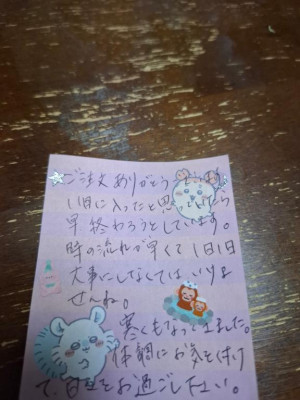 ご注文ありがとうございます
11月に入ったと思ってたら
早終わろうとしています。
時の流れが早くて1日1日
大事にしなくてはいけま
せんね。
寒くもなってきました。
体調にお気を付け
て、お過ごし下さい。